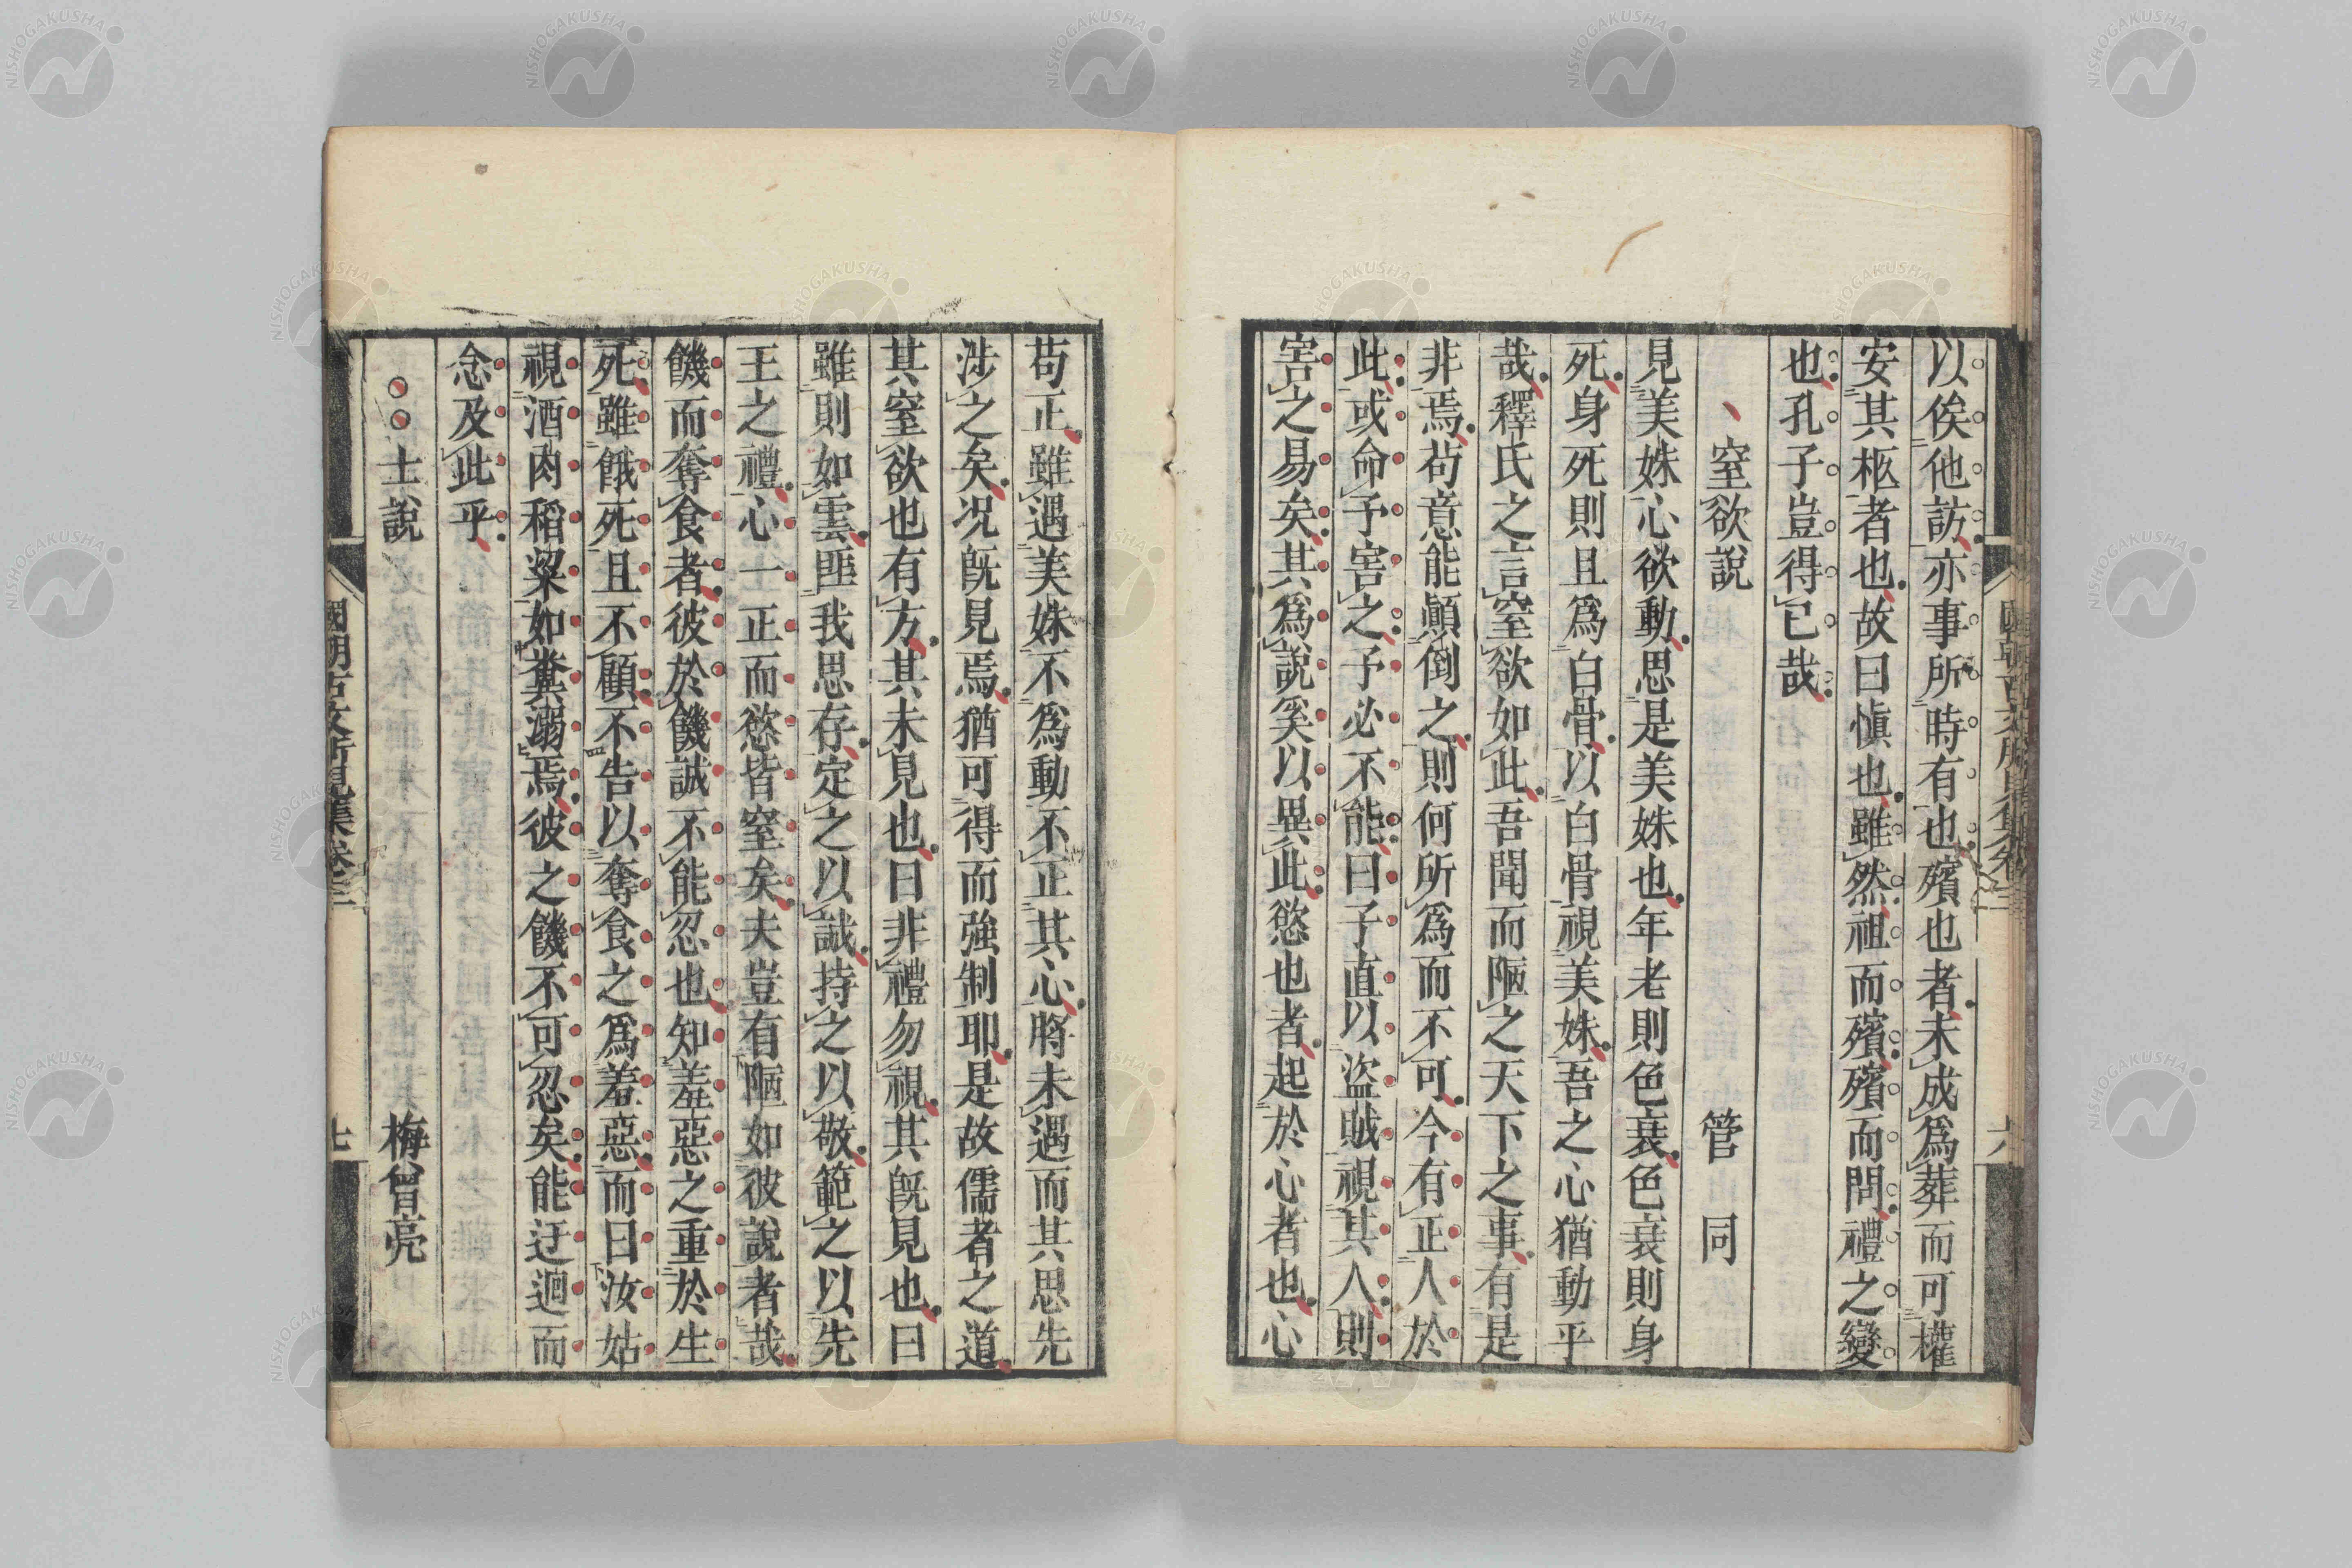 以俟他訪亦事所時有也殯也者未成爲葬而可權
安其柩者也故曰愼也雖然祖而殯殯而問禮之變
也孔子豈得已哉
窒欲說　管同
見美姝心欲動思是美姝也年老則色衰色衰則身
死身死則且爲白骨以白骨視美姝吾之心猶動乎
哉釋氏之言窒欲如此吾聞而陋之天下之事有是
非焉苟意能顚倒之則何所爲而不可今有正人於
此或命予害之予必不能曰子直以盜賊視其人則
害之易矣其爲說奚以異此慾也者起於心者也心
苟正雖遇美姝不爲動不正其心將未遇而其思先
涉之矣况旣見焉猶可得而強制耶是故儒者之道
其窒欲也有方其未見也曰非禮勿視其旣見也曰
雖則如雲匪我思存定之以誠持之以敬範之以先
王之禮心一正而慾皆窒矣夫豈有陋如彼說者哉
饑而奪食者彼於饑誠不能忍也知羞惡之重於生
死雖餓死且不顧不告以奪食之爲羞惡而曰汝姑
視酒肉稻粱如糞溺焉彼之饑不可忍矣能迂迴而
念及此乎
士說　梅曾亮
國朝古文所見集卷三
七
NISHOGAKUSHA